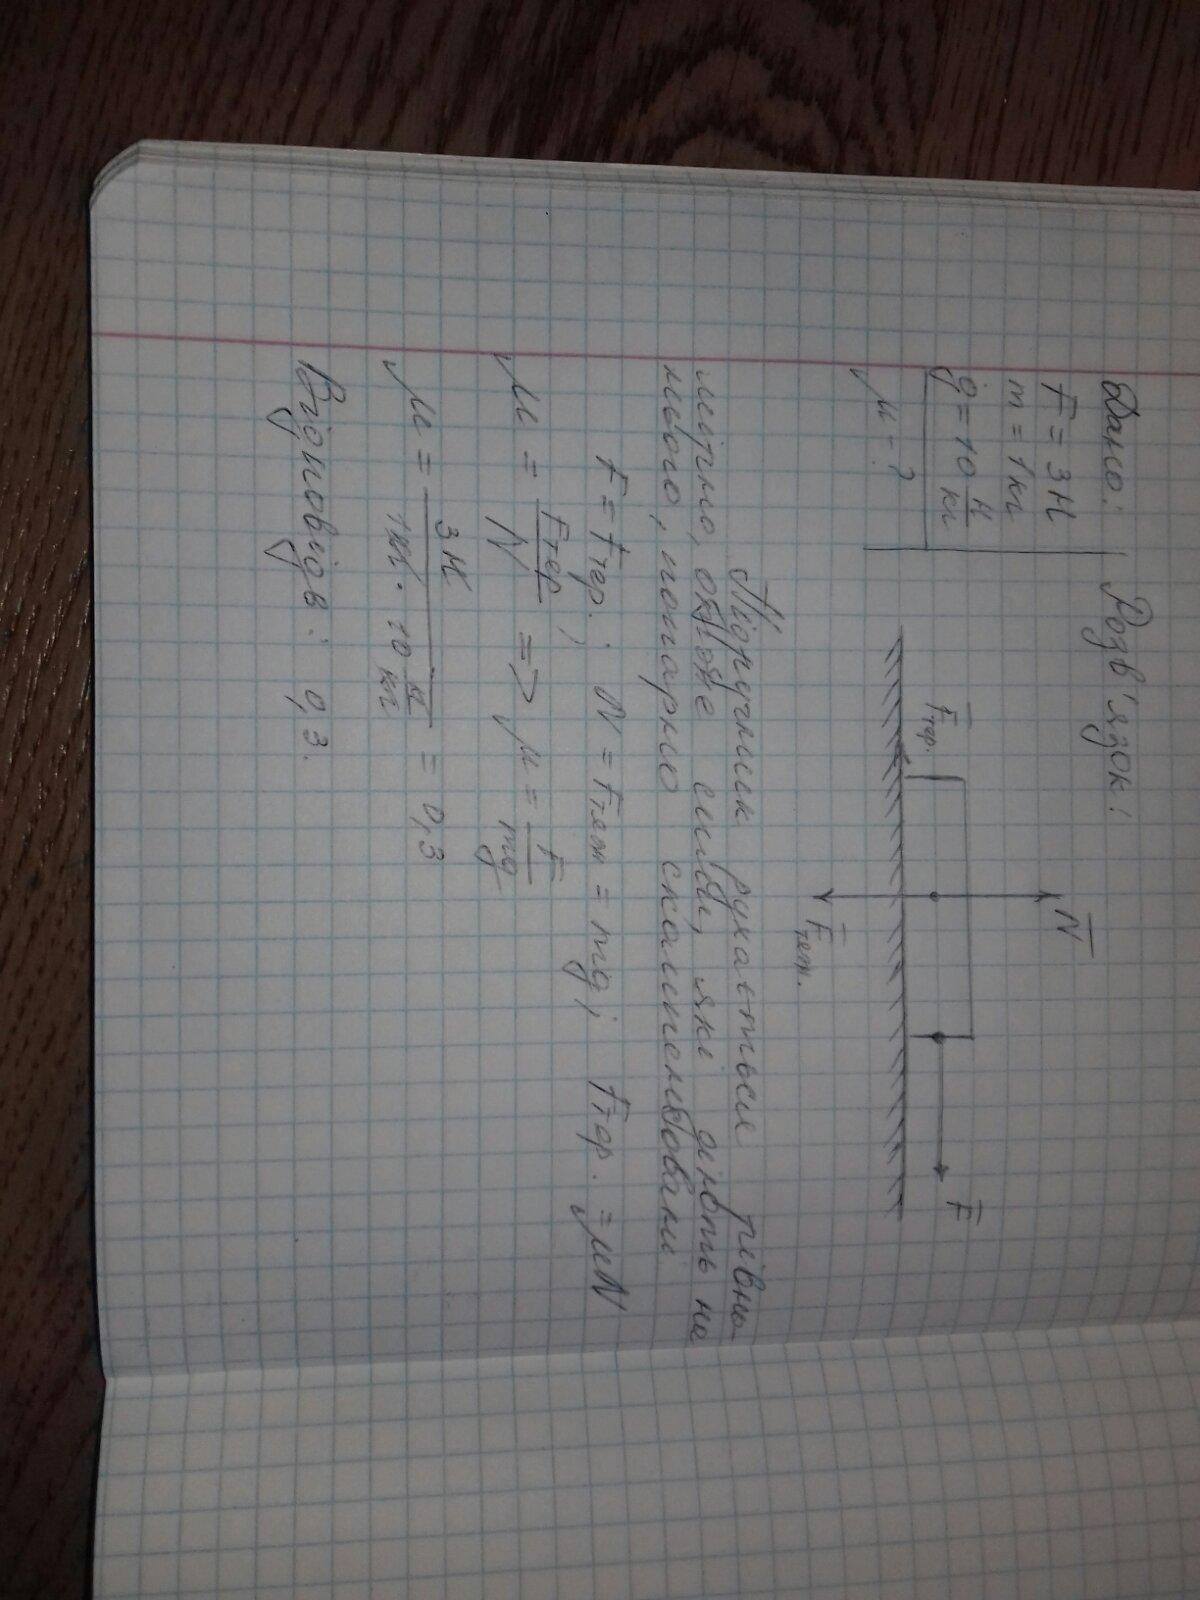 Дано: Розв'язок!
F = 3Н
m = 1кг
g = 10 Н/кг
μ - ?
N̅
F̅тер.
F̅
F̅тяж.
Підручник рухається рівно-
мірно, отже сили, які діють на
нього, попарно скомпенсовані
F = Fтер.; N = Fтяж = mg; Fтер. = μN
μ = Fтер/N => μ = F/mg
μ = 3Н/1кг · 10 Н/кг = 0,3
Відповідь: 0,3.